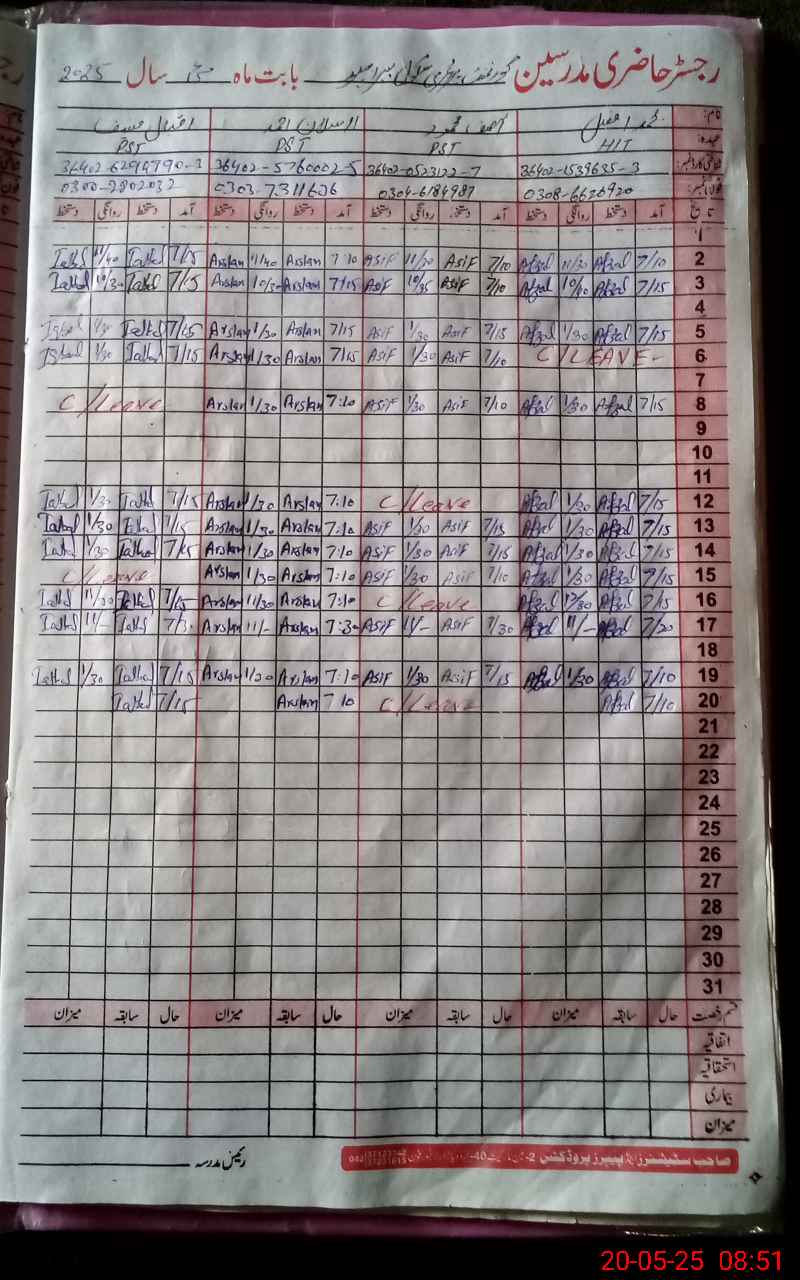 رجسٹر حاضری مدرسین گورنمنٹ پرائمری سکول بابت ماہ مئی سال 2025
نام: محمد افضل آصف محمود ارسلان احمد اقبال یوسف
عہدہ: HIT PST PST PST
شناختی کارڈ نمبر: 36402-1539635-3 36402-0523122-7 36402-5760002-5 36402-6290790-3
فون نمبر: 0308-6630920 0304-6184987 0303-7311636 0300-2802032
تاریخ آمد دستخط روانگی دستخط آمد دستخط روانگی دستخط آمد دستخط روانگی دستخط آمد دستخط روانگی دستخط
1
2 7/10 Afzal 11/30 Afzal 7/10 Asif 11/30 Asif 7:10 Arslan 11/40 Arslan 7/15 Iqbal 11/40 Iqbal
3 7/15 Afzal 10/40 Afzal 7/10 Asif 10/35 Asif 7/15 Arslan 10/30 Arslan 7/15 Iqbal 10/30 Iqbal
4
5 7/15 Afzal 1/30 Afzal 7/15 Asif 1/30 Asif 7/15 Arslan 1/30 Arslan 7/15 Iqbal 1/30 Iqbal
6 C/LEAVE- 7/10 Asif 1/30 Asif 7/15 Arslan 1/30 Arslan 7/15 Iqbal 1/30 Iqbal
7
8 7/15 Afzal 1/30 Afzal 7/10 Asif 1/30 Asif 7:10 Arslan 1/30 Arslan C/Leave
9
10
11
12 7/15 Afzal 1/30 Afzal C/Leave 7:10 Arslan 1/30 Arslan 7/15 Iqbal 1/30 Iqbal
13 7/15 Afzal 1/30 Afzal 7/15 Asif 1/30 Asif 7:10 Arslan 1/30 Arslan 7/15 Iqbal 1/30 Iqbal
14 7/15 Afzal 1/30 Afzal 7/15 Asif 1/30 Asif 7:10 Arslan 1/30 Arslan 7/15 Iqbal 1/30 Iqbal
15 7/15 Afzal 1/30 Afzal 7/10 Asif 1/30 Asif 7:10 Arslan 1/30 Arslan C/Leave
16 7/15 Afzal 11/30 Afzal C/Leave 7:10 Arslan 11/30 Arslan 7/15 Iqbal 11/30 Iqbal
17 7/20 Afzal 11/- Afzal 7/30 Asif 11/- Asif 7:30 Arslan 11/- Arslan 7/30 Iqbal 11/- Iqbal
18
19 7/10 Afzal 1/30 Afzal 7/15 Asif 1/30 Asif 7:10 Arslan 1/30 Arslan 7/15 Iqbal 1/30 Iqbal
20 7/10 Afzal C/Leave 7 10 Arslan 7/15 Iqbal
21
22
23
24
25
26
27
28
29
30
31
قسم رخصت حال سابقہ میزان حال سابقہ میزان حال سابقہ میزان حال سابقہ میزان
اتفاقیہ
استحقاقیہ
بیماری
میزان
رئیس مدرسہ
صاحب سٹیشنرز اینڈ پیپرز پروڈکٹس
20-05-25 08:51